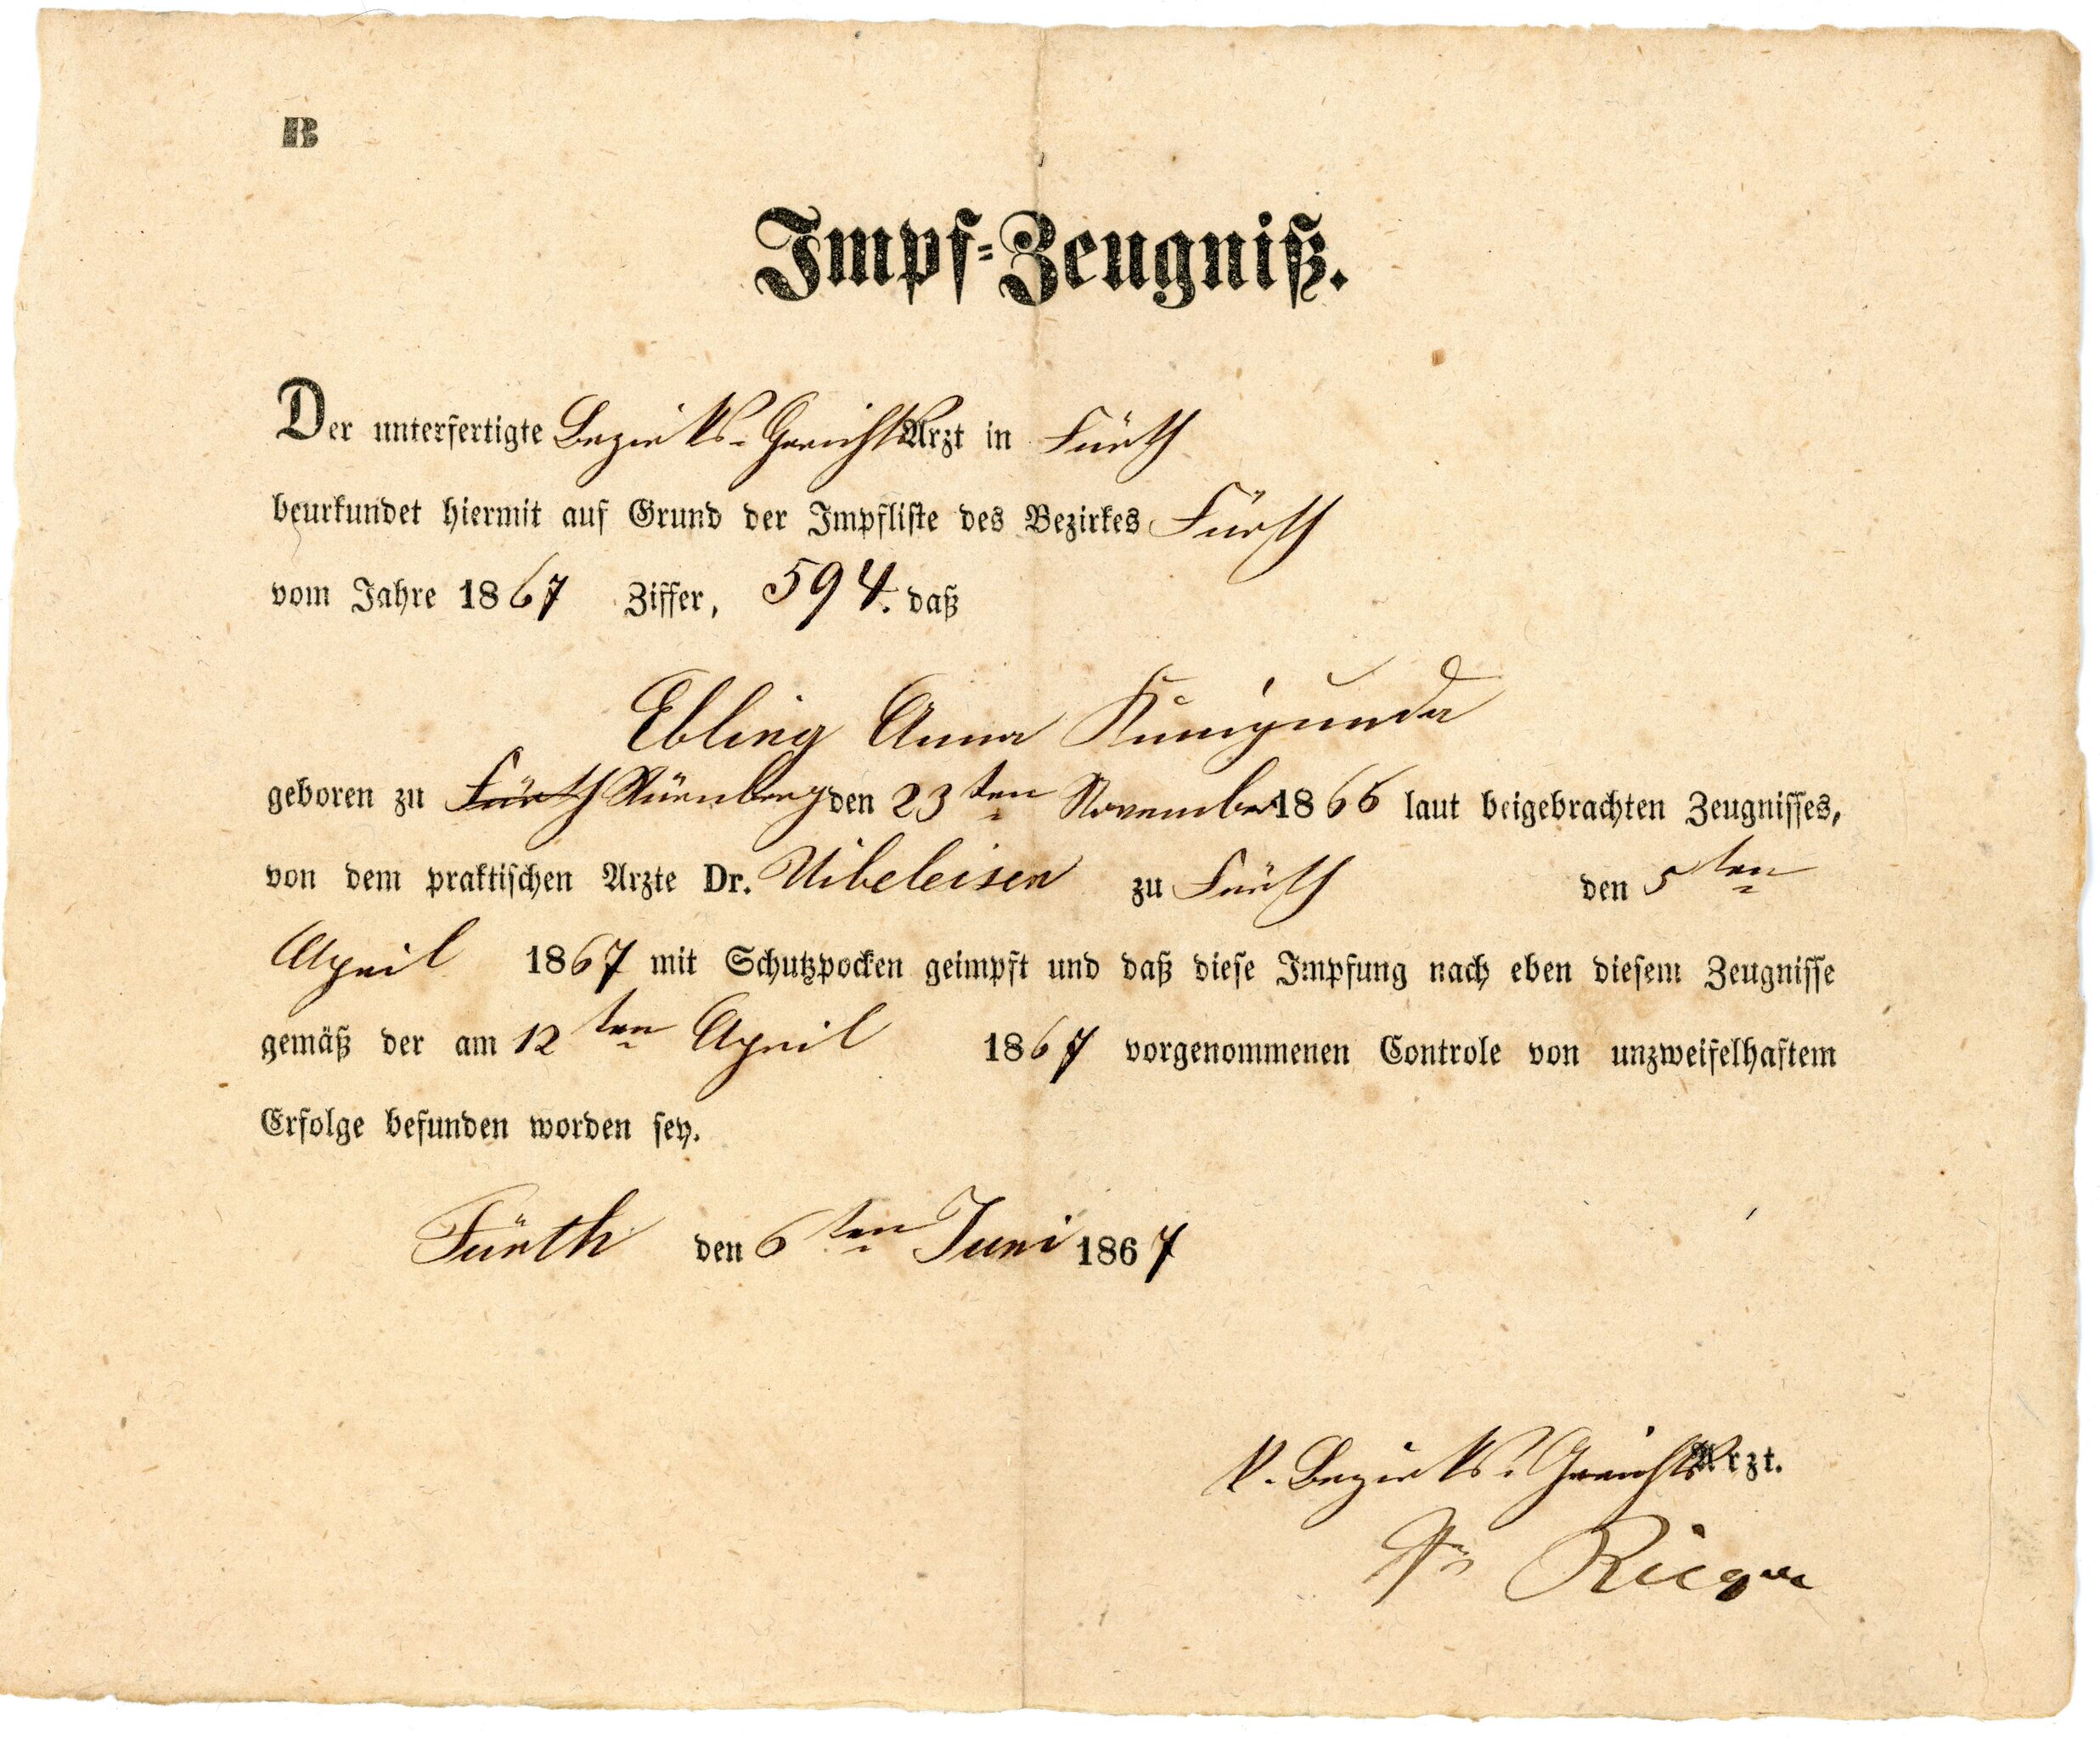 B
Impf-Zeugniß.
Der unterfertigte Bezirks-Gerichts Arzt in Fürth
beurkundet hiermit auf Grund der Impfliste des Bezirkes Fürth
vom Jahre 1867 Ziffer, 594. daß
Ebling Anna Kunigunda
geboren zu Fürth Nürnberg den 23ten November 1866 laut beigebrachten Zeugnisses,
von dem praktischen Arzte Dr. Uibeleisen zu Fürth den 5ten
April 1867 mit Schutzpocken geimpft und daß diese Impfung nach eben diesem Zeugnisse
gemäß der am 12ten April 1867 vorgenommenen Controle von unzweifelhaftem
Erfolge befunden worden sey.
Fürth den 6ten Juni 1867
k. Bezirks-Gerichts Arzt.
Rieger